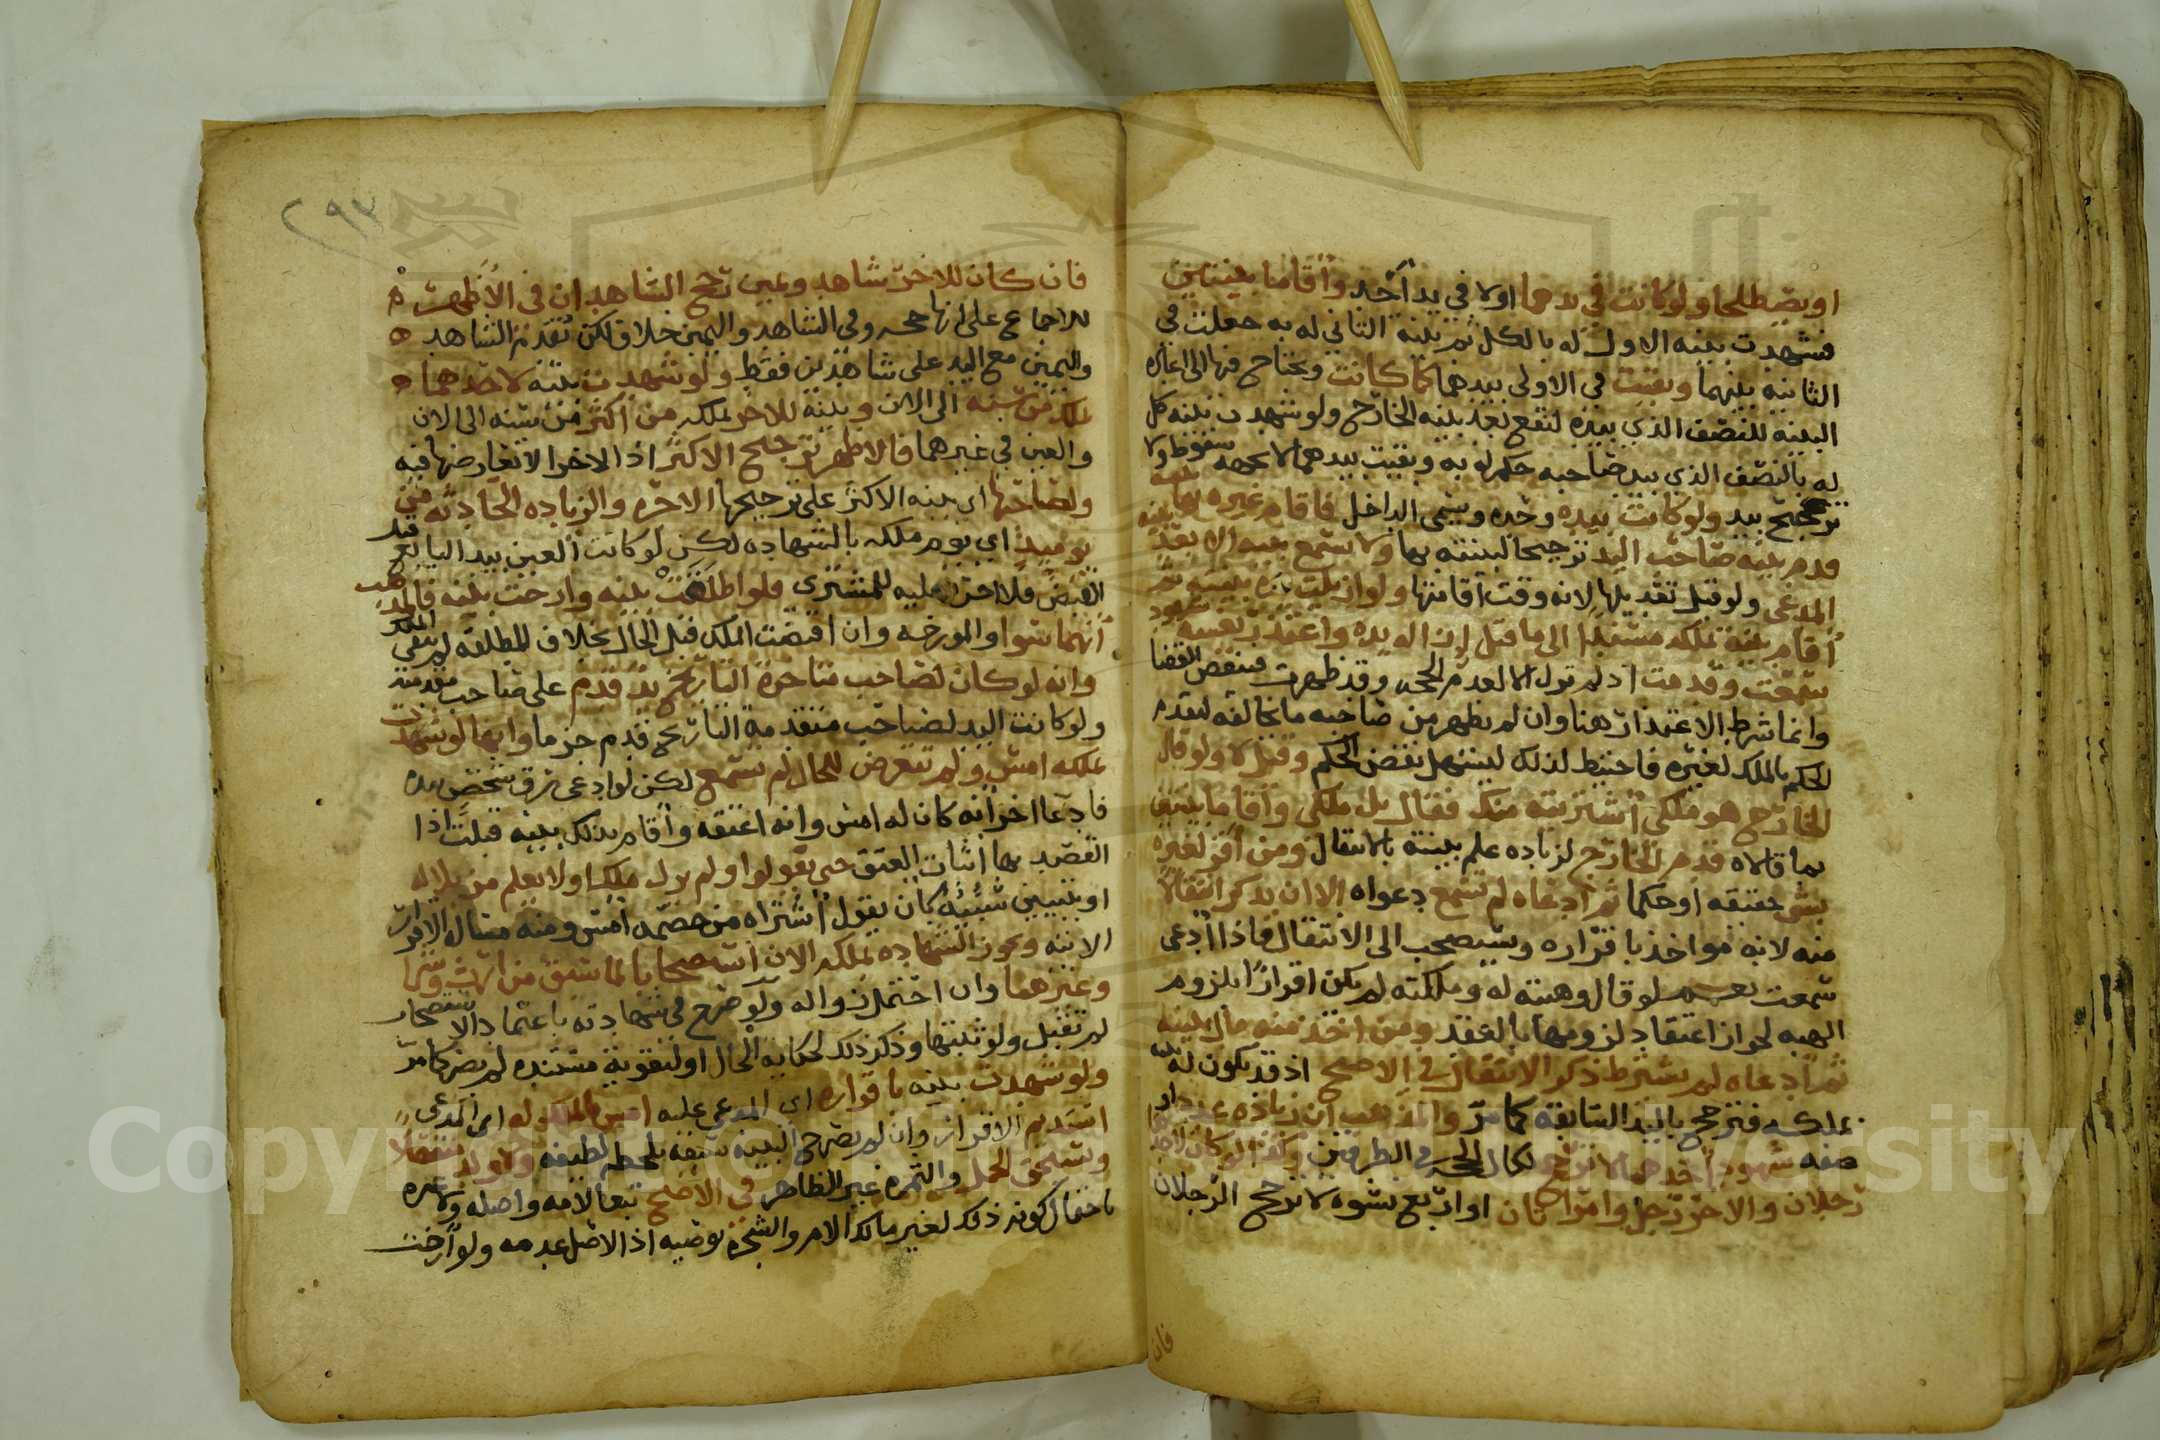 او يصطلحا ولو كانت في يدهما اولا في يد احد واقاما بينتين
فشهدت بينه الاول له بالكل ثم بينة الثاني له به جعلت في
الثانيه بينهما وبقيت في الاولى بيدهما كما كانت ويحتاج فيها الى اعاده
البينه للنصف الذي بيده لتقع بعد بينه الخارج ولو شهدت بينه كل
له بالنصف الذي بيد صاحبه حكم له به وبقيت بيدهما لا بجهه سقوط ولا
ترجيح بيد ولو كانت بيده وحده ويسمى الداخل فاقام غيره بها بينه
قدم بينه صاحب اليد ترجيحا لبينته بها ولا تسمع بينه الا بعد
المدعي ولو قبل تعديلها لانه وقت اقامتها ولو ازيلت يده ببينه ثم
أقام بينة بملكه مستندا الى ما قبل ازاله يده واعتذر بغيبه شهود
سمعت وقدمت اذ لم تزل الا لعدم الحجه وقد ظهرت فينقض القضا
وانما شرط الاعتذار هنا وان لم يظهر من صاحبه ما يخالفه لتقدم
الحكم بالملك لغيره فاحتيط لذلك ليسهل نقض الحكم وقيل لا ولو قال
الخارج هو ملكي اشتريته منك فقال بل ملكي واقاما بينتين
بما قالاه قدم الخارج لزياده علم بينته بالانتقال ومن أقر لغيره
بشي حقيقه او حكما ثم ادعاه لم تسمع دعواه الا ان يذكر انتقالا
منه لانه مواخذ باقراره ويستصحب الى الانتقال فاذا ادعى
سمعت نعم لو قال وهبته له وملكته لم يكن اقرارا بلزوم
الهبه لجواز اعتقاد لزومها بالعقد ومن اخذ منه مال ببينه
ثم ادعاه لم يشترط ذكر الانتقال في الاصح اذ قد يكون له بينه
بملكه فترجح باليد السابقه كما مر والمذهب ان زياده عدد او
صفه شهود احدهما لا ترجح لكمال الحجه في الطرفين وكذا لو كان لاحدهما
رجلان والاخر رجل وامراتان او اربع نسوه لا يرجح الرجلان
فان
٢٩٣
فان كان للاخر شاهد ويمين رجح الشاهدان في الأظهر
للاجماع على انها حجه وفي الشاهد واليمين خلاف لكن تقدم الشاهد
واليمين مع اليد على شاهدين فقط ولو شهدت بينة لاحدهما
بملك من سنه الى الان وبينة للاخر بملكه من أكثر من سنه الى الان
والعين في غيرهما فالاظهر ترجيح الاكثر اذ الاخرا لا تعارضها فيه
ولصاحبها اي بينه الاكثر على ترجيحها الاجره والزياده الحادثه من
يوميذ اي يوم ملكه بالشهاده لكن لو كانت العين بيد البايع قبل
القبض فلا اجره عليه للمشتري ولو اطلقت بينه وارخت بينه فالمذهب
أنهما سوا والمورخه وان اقتضت الملك قبل الحال بخلاف المطلقه لم تنفي الملك
وانه لو كان لصاحب متاخرة التاريخ يد قدم على صاحب متقدمته
ولو كانت اليد لصاحب متقدمة التاريخ قدم جزما وانها لو شهدت
بملكه امس ولم تتعرض للحال لم تسمع لكن لو ادعى رق شخص بيده
فادعا اخر انه كان له امس وانه اعتقه وأقام بذلك بينه قبلت اذا
القصد بها اثبات العتق حتى يقولوا ولم يزل ملكه او لا نعلم مزيلا له
او يتبين سببه كان يقول اشتراه من خصمه امس ومنه مثال الاقرار
الاتيه وتجوز الشهاده بملكه الان استصحابا لما سبق من ارث وشرا
وغيرهما وان احتمل زواله ولو صرح في شهادته باعتماد الاستصحاب
لم تقبل ولو ثبتها وذكر ذلك لحكايه الحال او لتقوية مستنده لم يضر كما مر
ولو شهدت بينه باقراره اي المدعى عليه امس بالملك له اي المدعي
استديم الاقرار وان لم يصرح البينه
ويستحق الحمل والثمره غير الظاهره في الاصح تبعا لامه واصله ولا عبره
باحتمال كونه ذلك لغير مالك الام والشجره بوصيه اذ الاصل عدمه ولو أرخت
Copyright © King Saud University